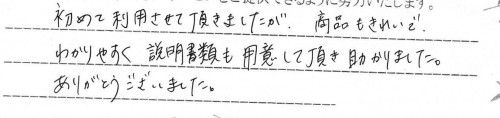 ご提供できるように努力いたします。
初めて利用させて頂きましたが、商品もきれいで、
わかりやすく説明書類も用意して頂き助かりました。
ありがとうございました。